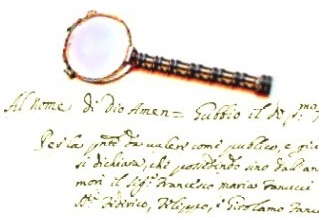 Al Nome di Dio Amen = Gubbio il dì
Per la pnte da valere come publico, e giu
si dichiara, che possedendo sino dall'an
mori il Sigr Francesco maria Fanucci
Federico, Filippo, e Girolamo Fanu